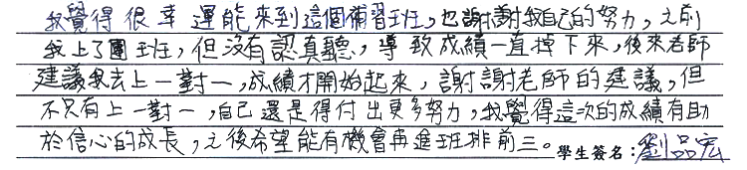 我覺得很幸運能來到這個補習班，也謝謝我自己的努力，之前
我上了團班，但沒有認真聽，導致成績一直掉下來，後來老師
建議我去上一對一，成績才開始起來，謝謝老師的建議，但
不只有上一對一，自己還是得付出更多努力，我覺得這次的成績有助
於信心的成長，之後希望能有機會再進班排前三。學生簽名：劉品宏